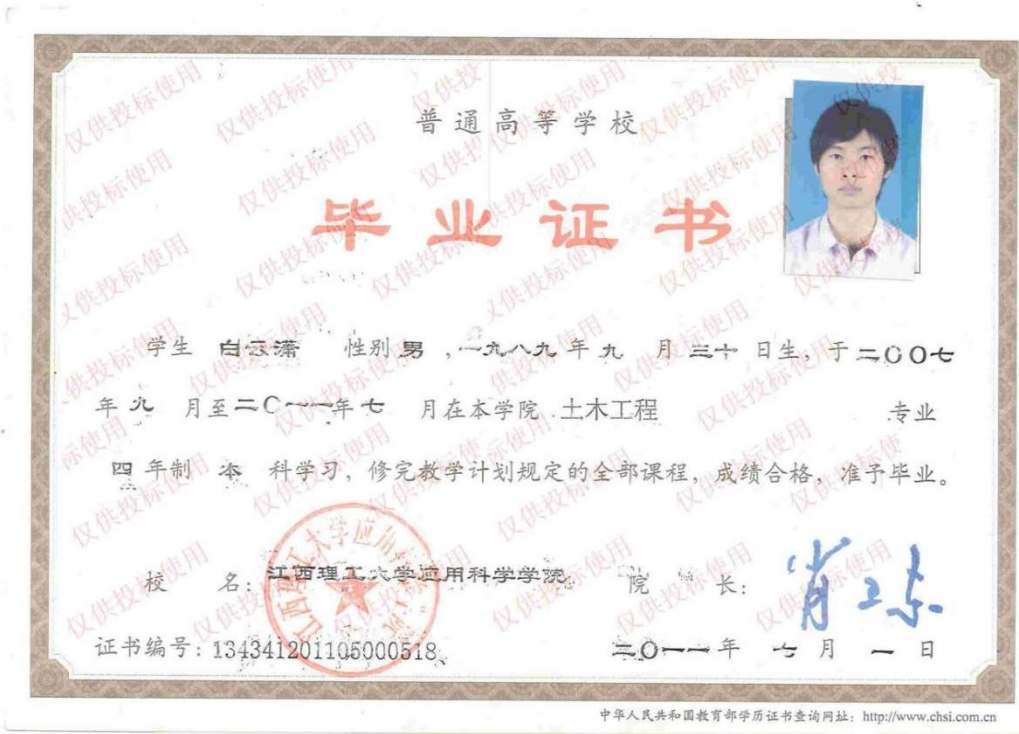 普通高等学校
毕业证书
学生 白云潇 性别 男 ,一九八九年 九 月 三十 日生, 于二〇〇七
年九 月至二〇一一年七 月在本学院 土木工程 专业
四 年制 本 科学习, 修完教学计划规定的全部课程, 成绩合格, 准予毕业。
校 名: 江西理工大学应用科学学院 院 长:
证书编号: 134341201105000518 二〇一一年 七 月 一 日
中华人民共和国教育部学历证书查询网址: http://www.chsi.com.cn
仅供投标使用